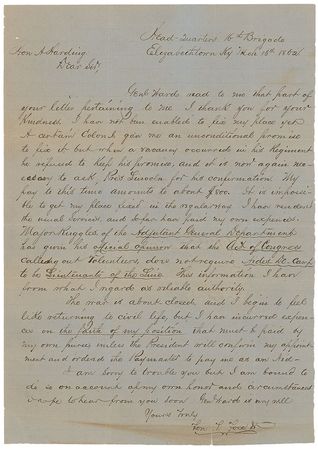 Head Quarters 16th Brigade
Elizabethtown Ky Mch 18th 1862
Hon A Harding
Dear Sir,
Genl Ward read to me that part of
your letter pertaining to me I thank you for your
Kindness. I have not been enabled to fix my place yet
A certain Colonel gave me an unconditional promise
to fix it but when a vacancy occurred in his Regiment
he refused to keep his promise, and it is now again nec-
essary to ask Pres Lincoln for his confirmation. My
pay to this time amounts to about $800. It is impossi-
ble to get my place in the regular way I have rendered
the usual service, and so far have paid my own expences.
Major Ruggles of the Adjutant Generals Department
has given his official opinion that the Act of Congress
calling out Volunteers, does not require Aides de Camp
to be Lieutenants of the Line. This information I have
from what I regard as reliable authority.
The war is about closed and I begin to feel
like returning to civil life, but I have incurred expen-
ce on the faith of my position that must be paid by
my own purse unless the President will confirm my appoint-
ment and ordered the Paymaster to pay me as an Aid-
I am sorry to trouble you but I am bound to
do it on account of my own honor and circumstances
I hope to hear from you soon. Gen Ward is very well
Yours Truly